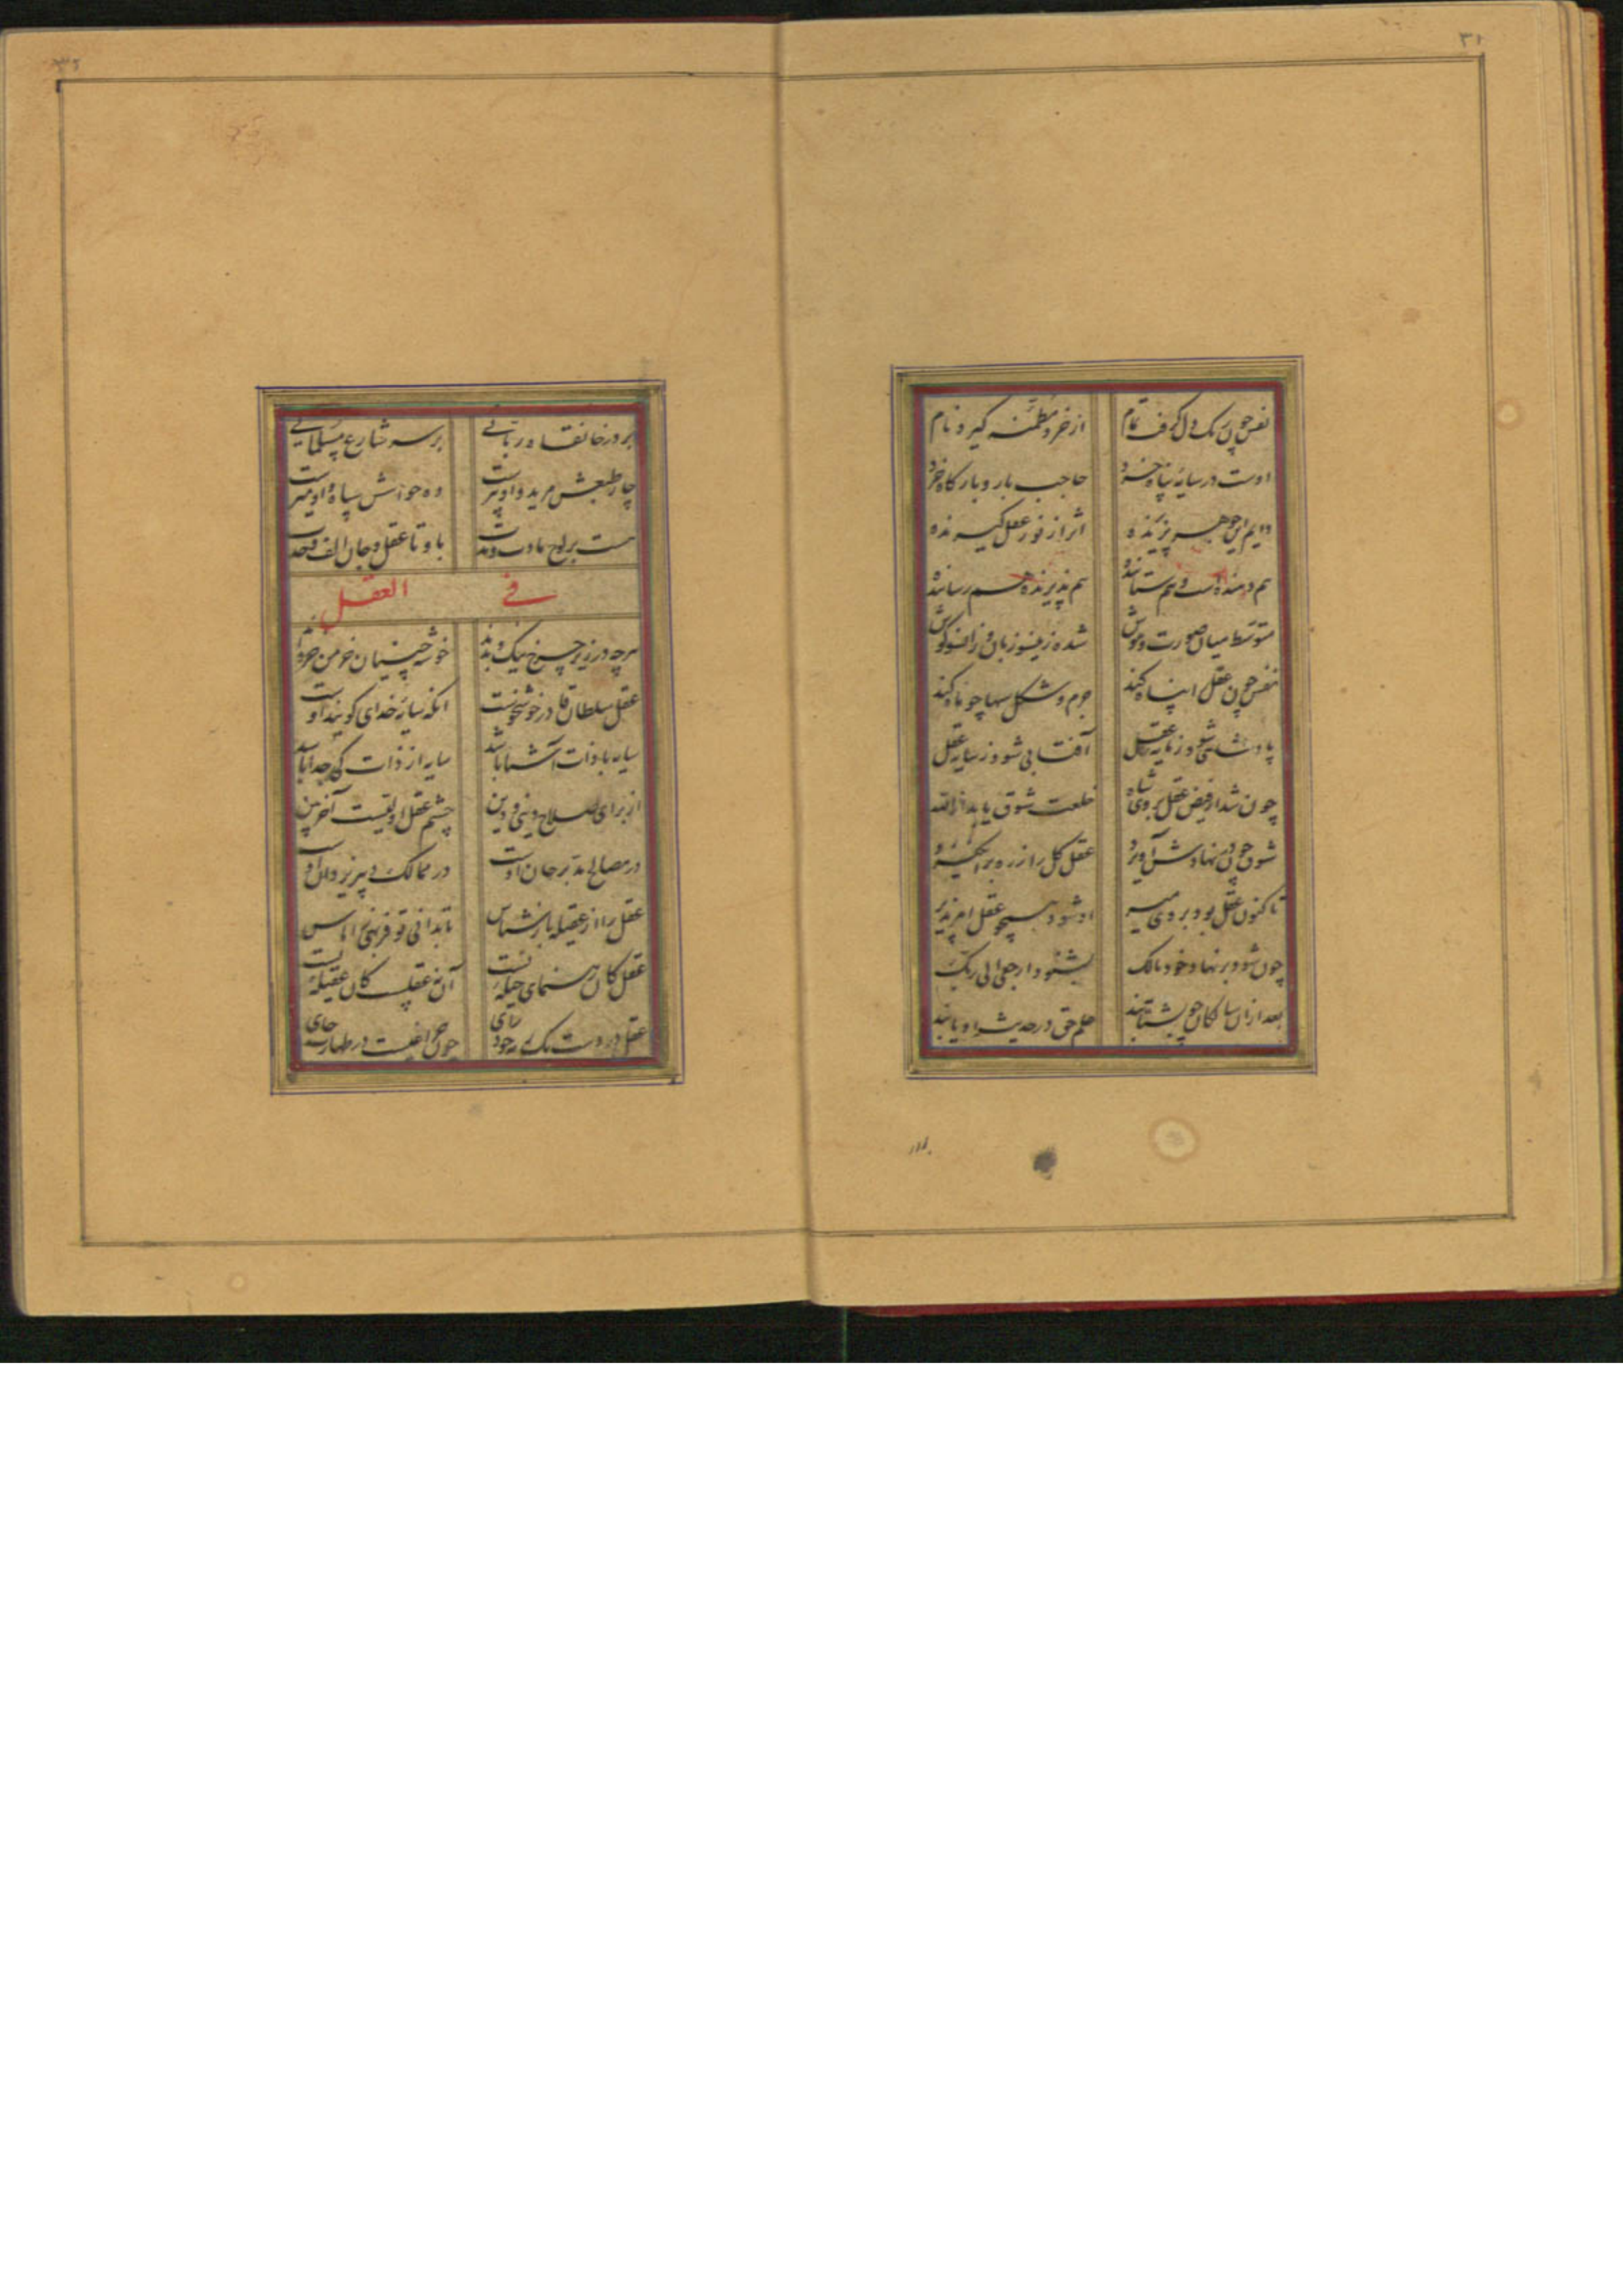 ۳۱
نفس چون رنگ دل گرفت تمام از خرد مطمئنه گیرد نام
اوست در سایهٔ پناه خرد حاجب بار و بارگاه خرد
دایم این جوهر پذیرنده اثر از نور عقل گیرنده
هم دهنده است و هم ستاننده هم پذیرنده هم رساننده
متوسط میان صورت و هوش شده زینسو زبان و زانسو گوش
نفس چون عقل را پناه کند جرم و شکل سها چو ماه کند
پادشاهی شود ز مایه عقل آفتابی شود ز سایه عقل
چون شد از فیض عقل بر وی شاه خلعت شوق یابد از الله
شوق چون در نهادش آویزد عقل کل را ز ره برانگیزد
تا کنون عقل بود بر وی میر او شود همچو عقل امرپذیر
چون شود بر نهاد خود مالک بشنود ارجعی الی ربک
بعد از آن سالکان چو بشتابند علم حق در حدیث او یابند
۳۲
بر در خانقاه ربانی بر سر شارع مسلمانی
چار طبعش مرید و او پیرست ده حواش سپاه و او میرست
هست بر لوح مادت و مدت با و تا عقل و جان الف وحدت
فی العقل
هرچه در زیر چرخ نیک و بدند خوشه چینان خرمن خردند
عقل سلطان قادر خوشخوست آنکه سایه خدای گویند اوست
سایه با ذات آشنا باشد سایه از ذات کی جدا باشد
از برای صلاح دینی و دین چشم عقل اولیست آخربین
در مصالح مدبر جان اوست در ممالک دبیر یزدان اوست
عقل را از عقیله بازشناس تا بدانی تو فربهی ز آماس
عقل کان رهنمای حیلهٔ تست آن نه عقلست کان عقیلهٔ تست
عقل در دست یک رمه خود رای چون چراغیست در طهارت جای